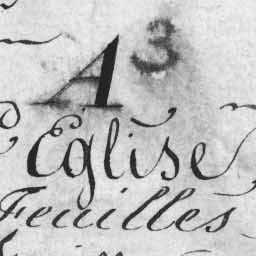 A 3
Eglise
Feuilles